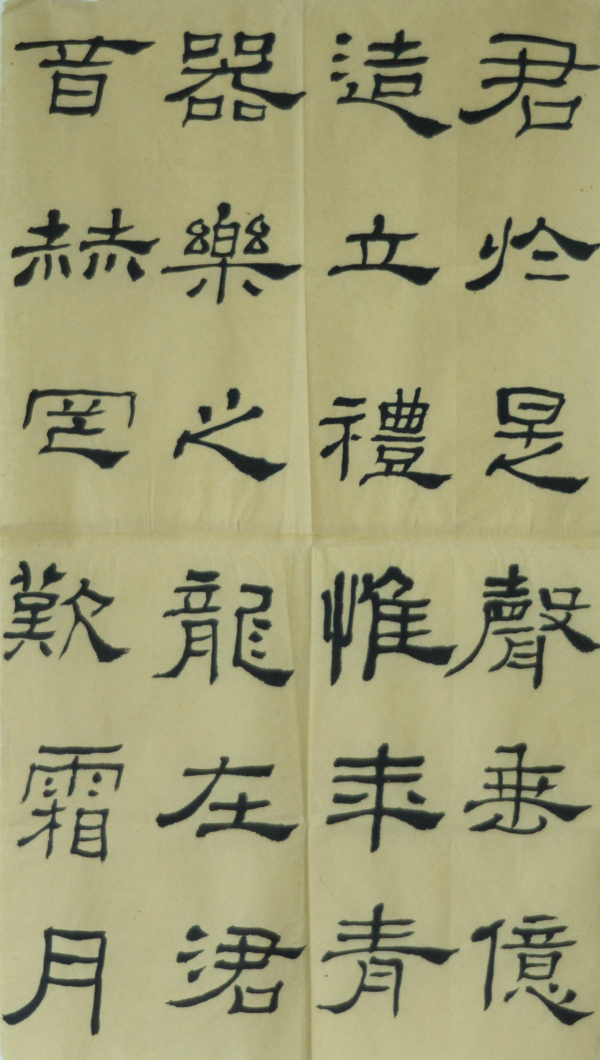 君於是聲垂億
造立禮惟年青
器樂之龍在涒
音赫罔歎霜月